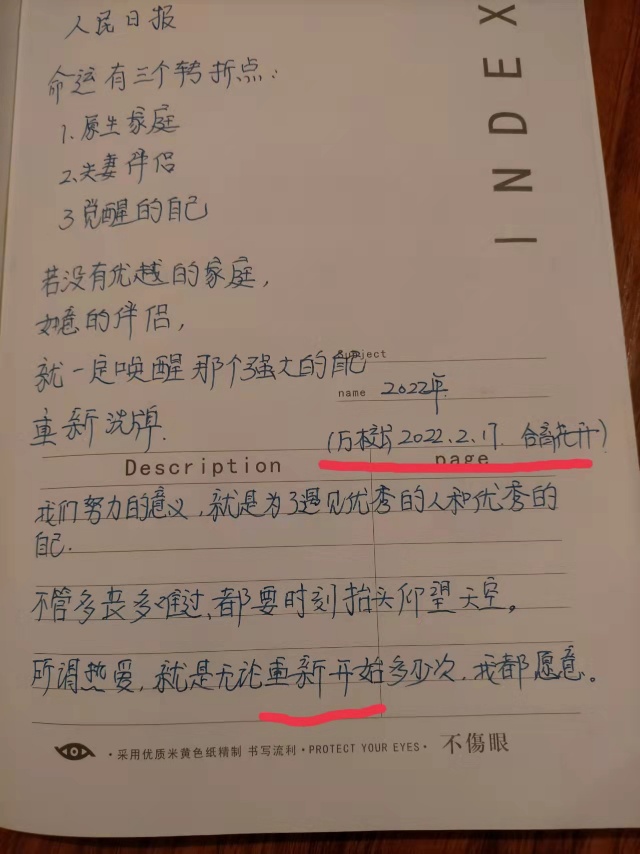 人民日报
INDEX
命运有三个转折点:
1.原生家庭
2.夫妻伴侣
3觉醒的自己
若没有优越的家庭,
如意的伴侣,
就一定唤醒那个强大的自己
Subject
重新洗牌.
name 2022年
2022.2.17.
Description
page
我们努力的意义,就是为了遇见优秀的人和优秀的
自己.
不管多丧多难过,都要时刻抬头仰望天空。
所谓热爱,就是无论重新开始多少次,我都愿意。
·采用优质米黄色纸精制 书写流利·PROTECT YOUR EYES· 不傷眼